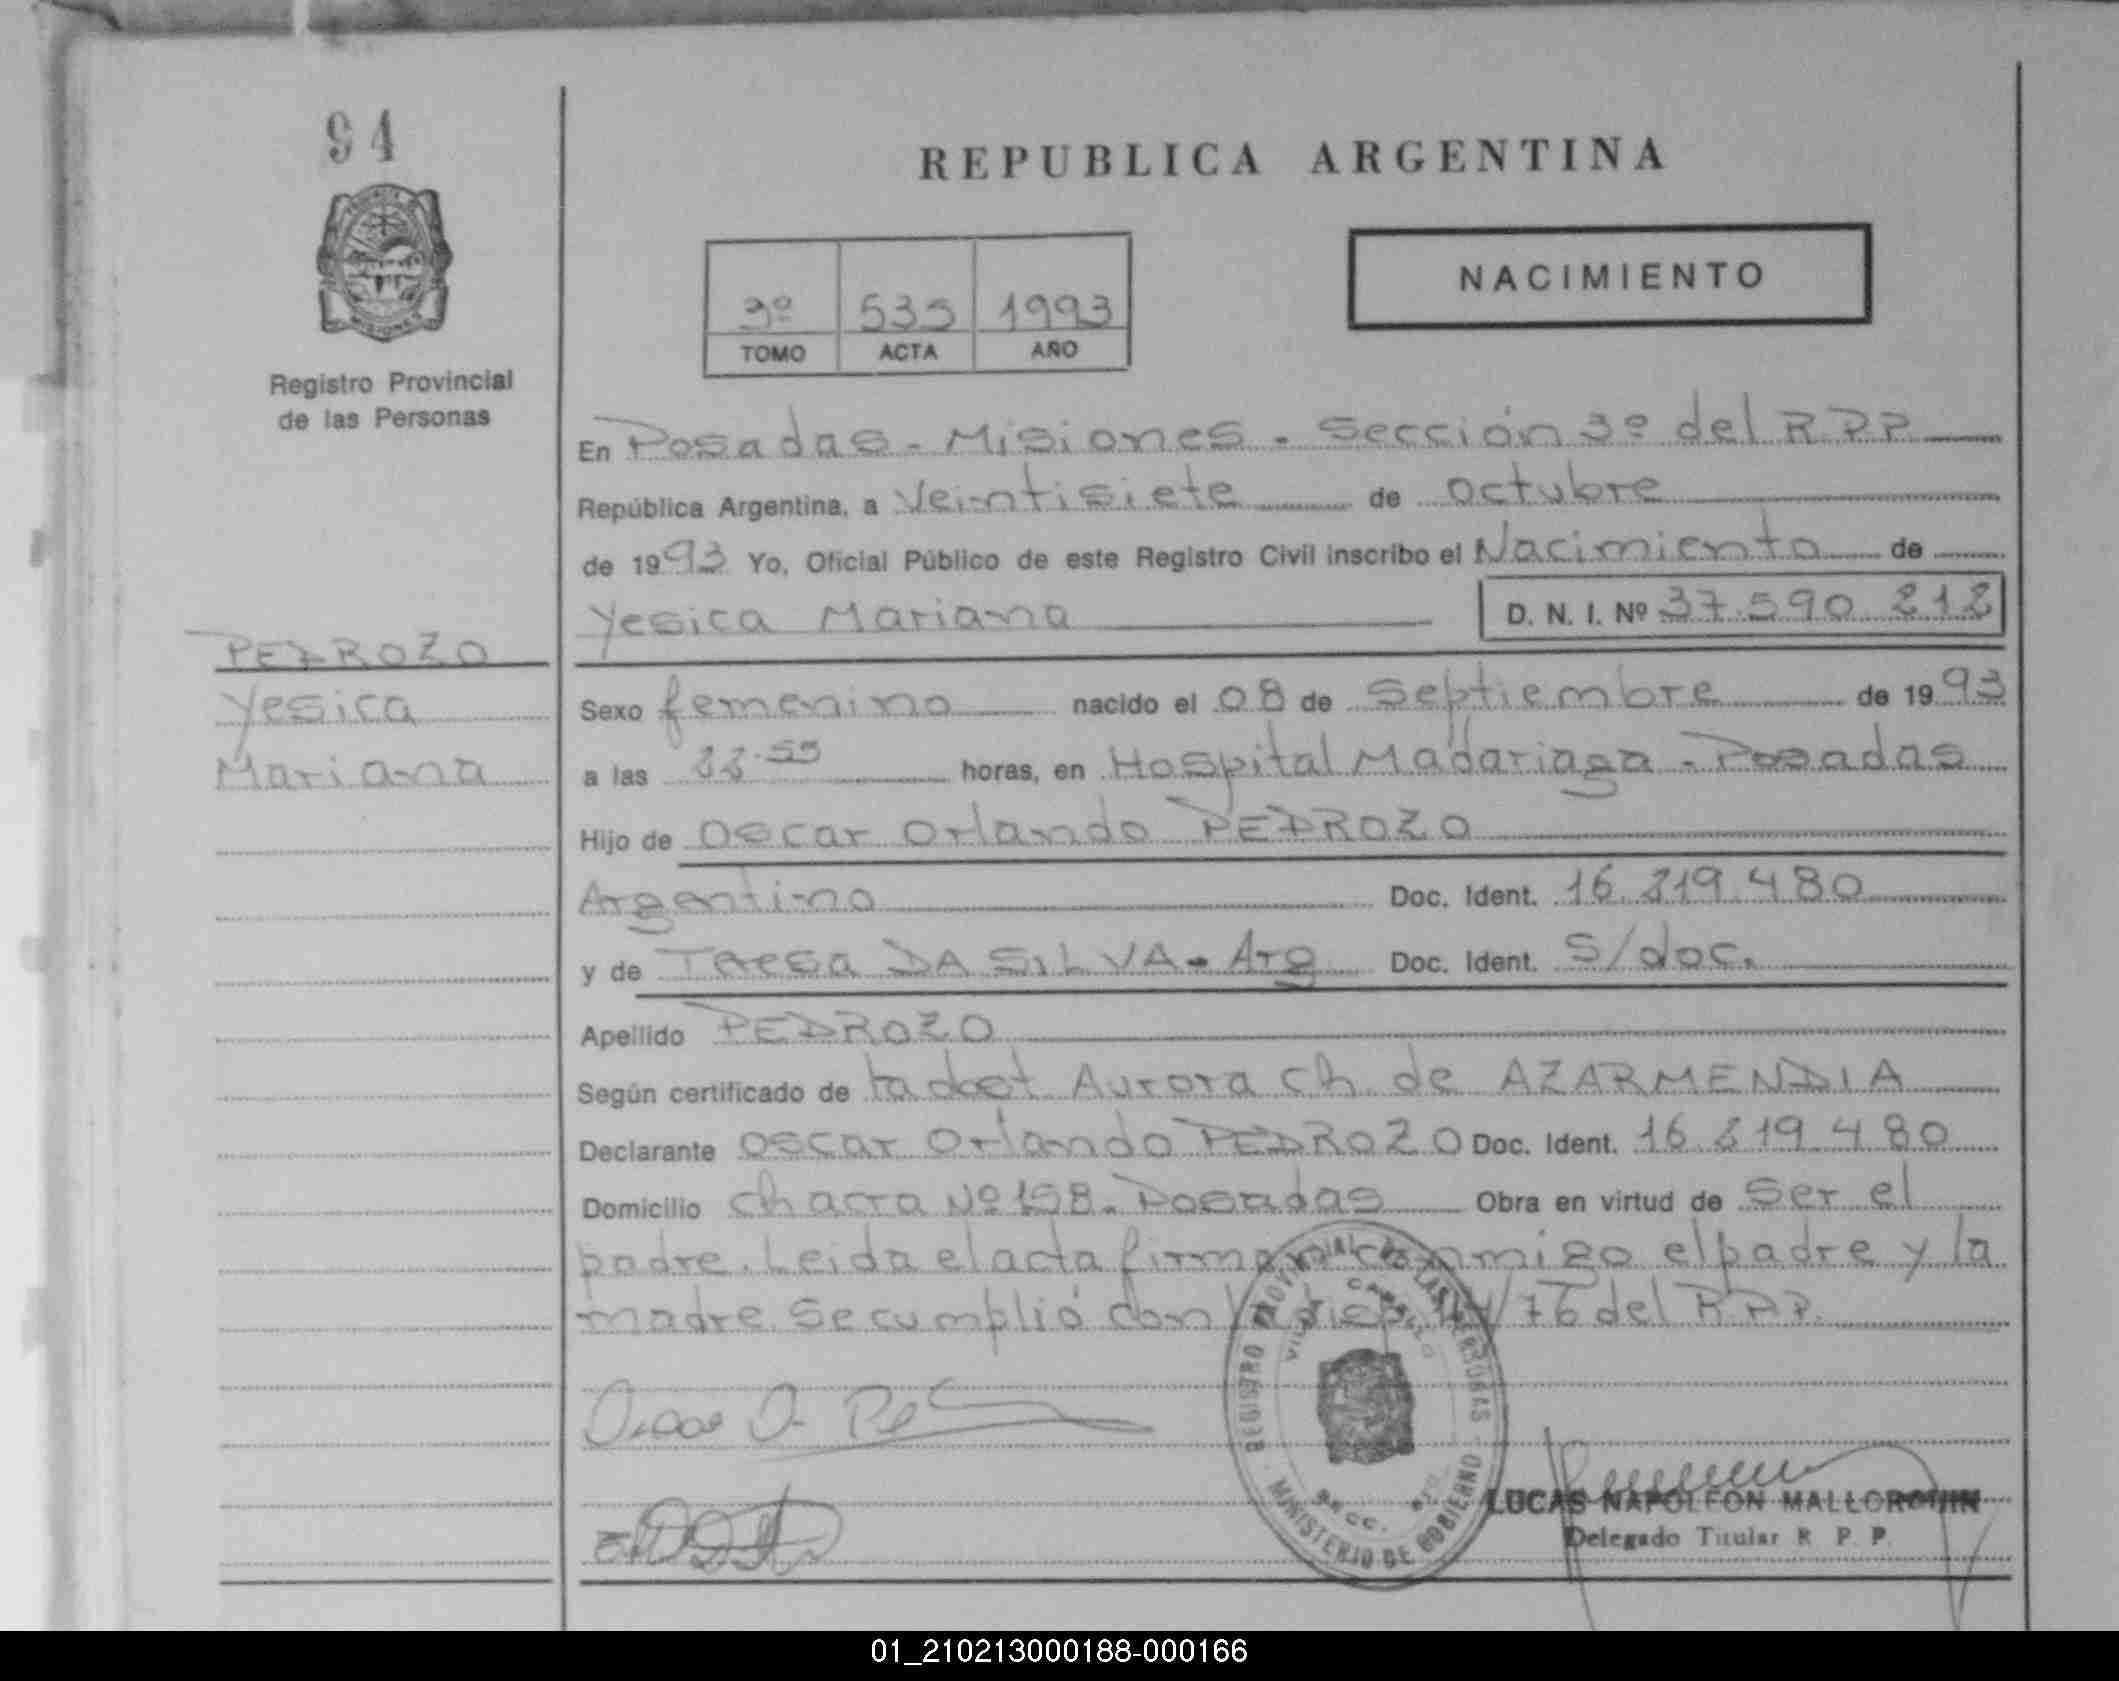 94
REPUBLICA ARGENTINA
NACIMIENTO
3º 535 1993
TOMO ACTA AÑO
MISIONES
Registro Provincial
de las Personas
En Posadas - Misiones - Sección 3º del R.P.P.
República Argentina, a Veintisiete de octubre
de 1993 Yo, Oficial Público de este Registro Civil inscribo el Nacimiento de
Yesica Mariana D. N. I. Nº 37.590.212
PEDROZO
Yesica
Mariana
Sexo femenino nacido el 08 de Septiembre de 1993
a las 22.55 horas, en Hospital Madariaga - Posadas
Hijo de Oscar Orlando PEDROZO
Argentino Doc. Ident. 16.219.480
y de Teresa DA SILVA - Arg Doc. Ident. S/doc.
Apellido PEDROZO
Según certificado de Aurora Ch. de AZARMENDIA
Declarante Oscar Orlando PEDROZO Doc. Ident. 16.219.480
Domicilio Chacra Nº 158. Posadas Obra en virtud de Ser el
padre. Leida el acta firman conmigo el padre y la
madre. Se cumplió con /76 del R.P.P.
REGISTRO PROVINCIAL DE LAS PERSONAS
MINISTERIO DE GOBIERNO
LUCAS NAPOLEON MALLORQUIN
Delegado Titular R. P. P.
01_210213000188-000166